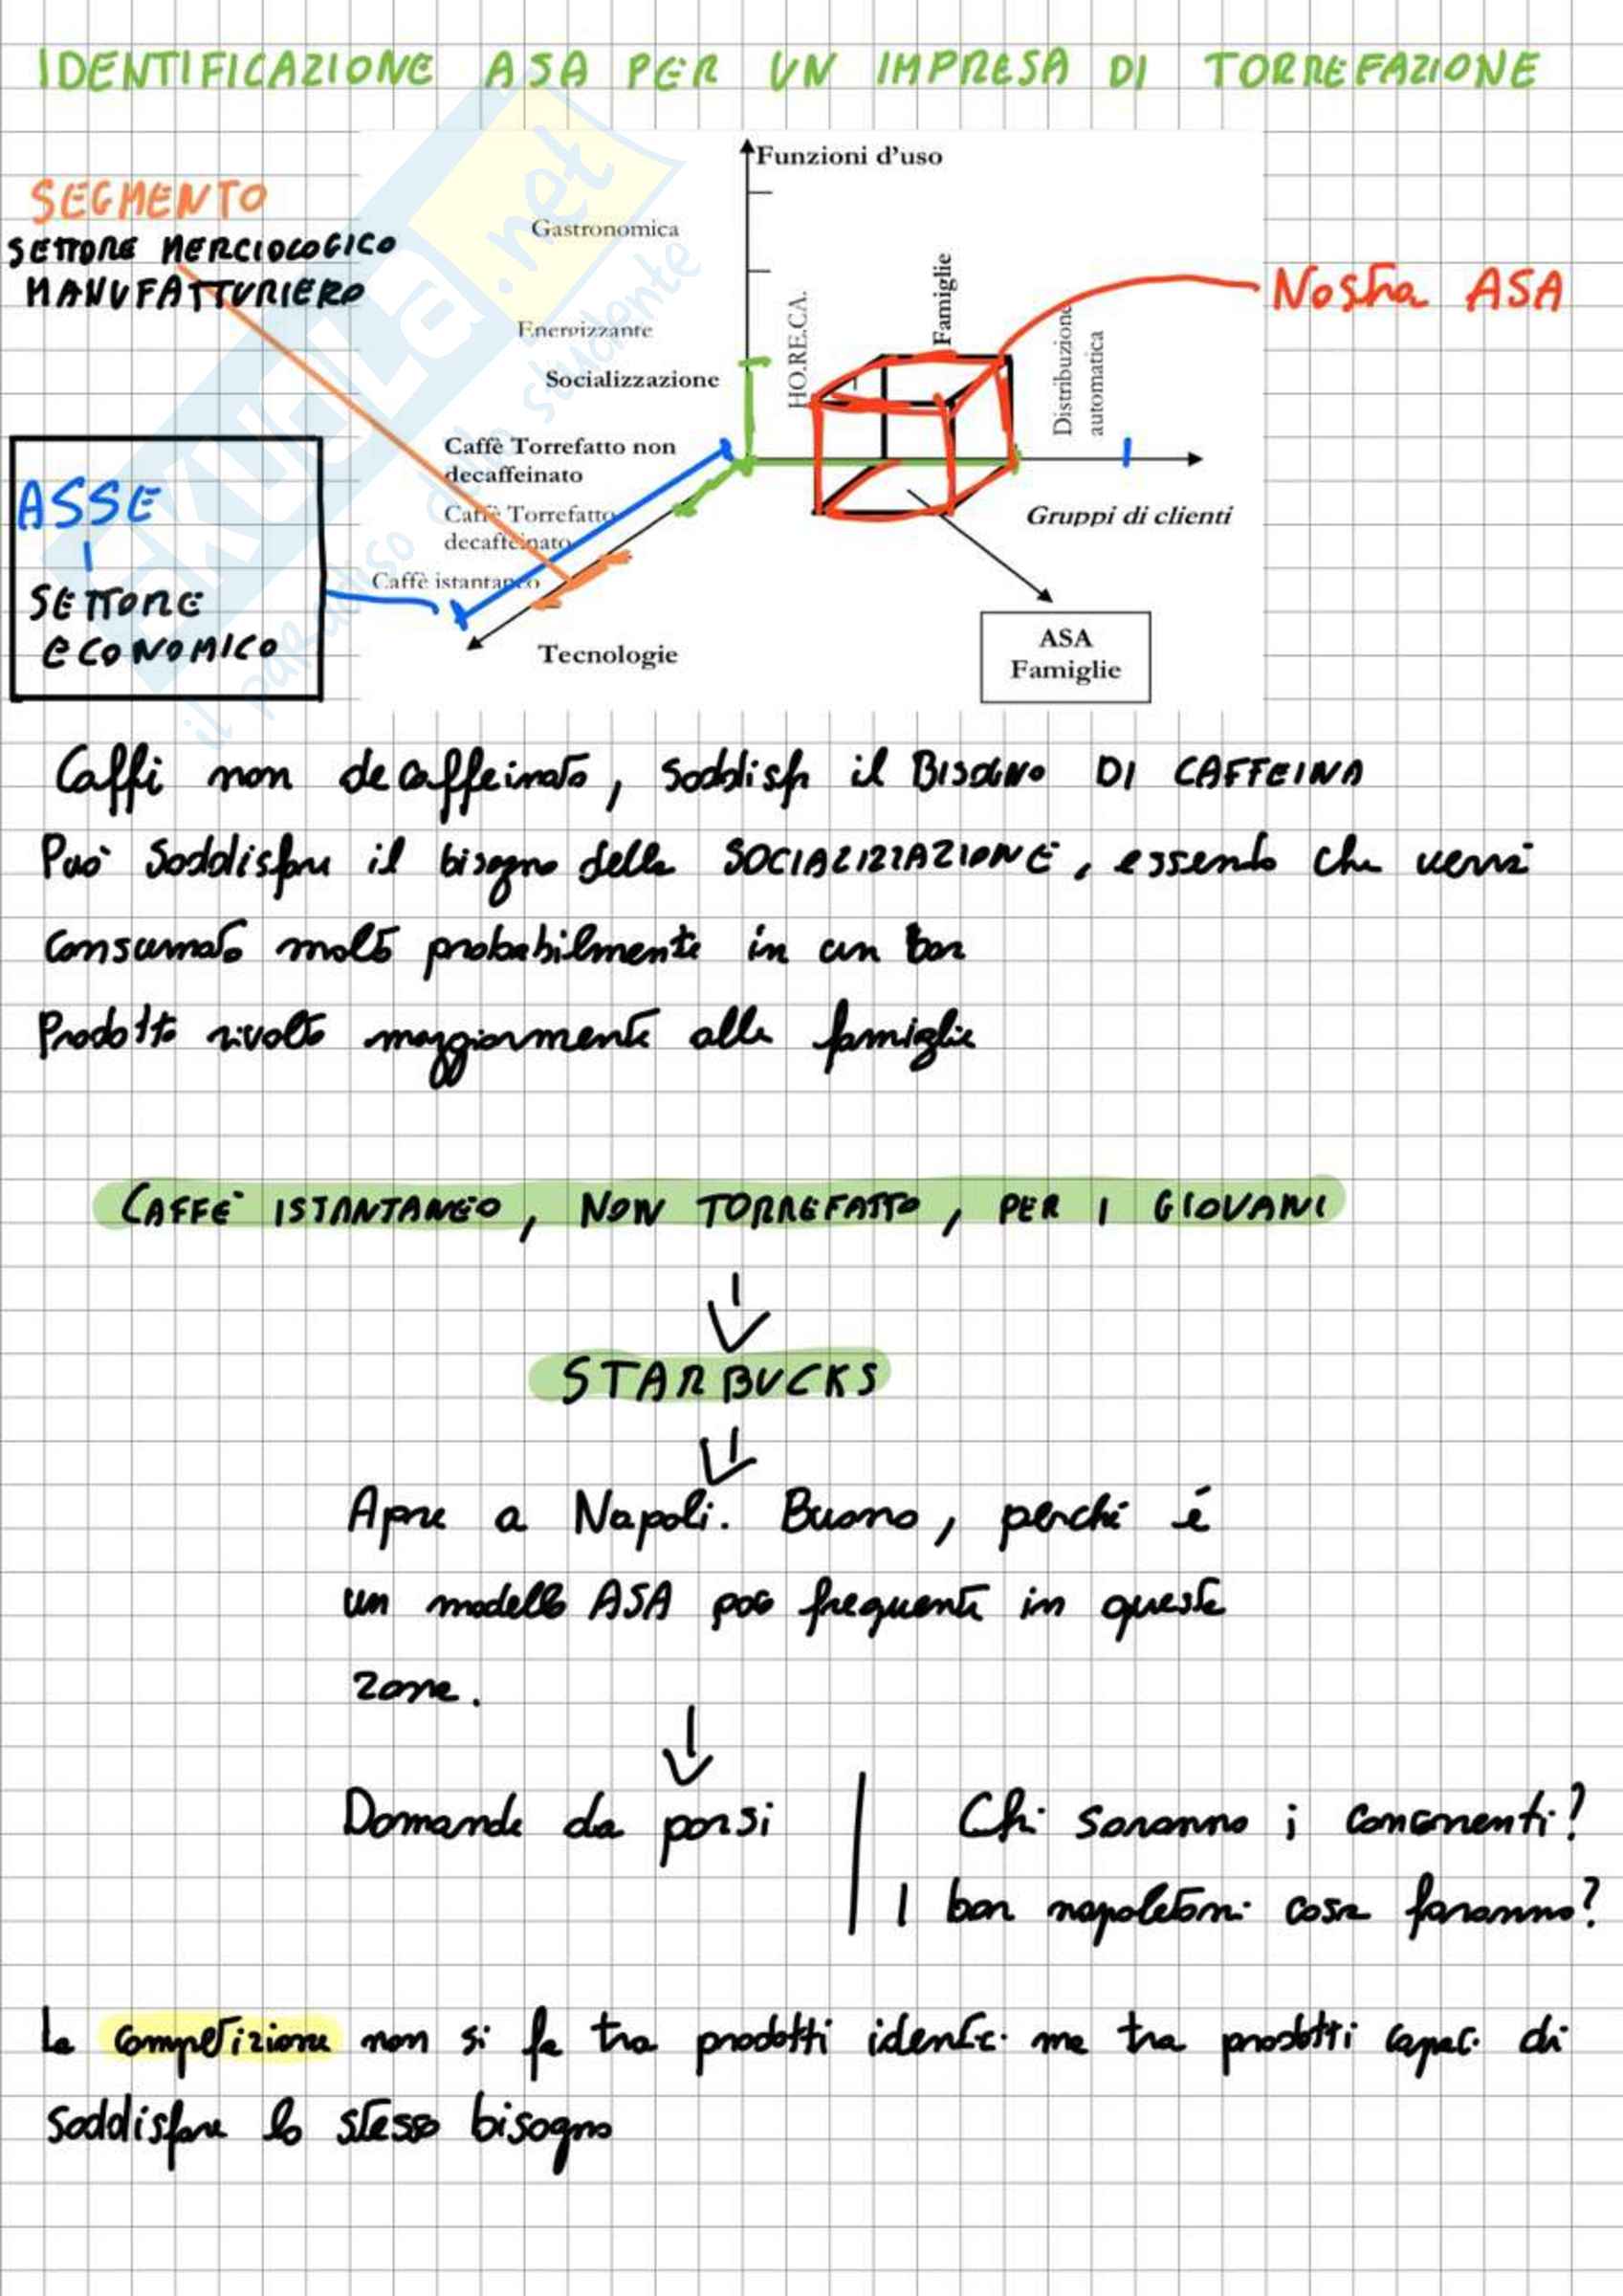 IDENTIFICAZIONE ASA PER UN IMPRESA DI TORREFAZIONE
SEGMENTO
SETTORE MERCIOLOGICO
MANUFATTURIERO
Funzioni d'uso
Gastronomica
Energizzante
Socializzazione
HO.RE.CA.
Famiglie
Distribuzione
automatica
Nostra ASA
Caffè Torrefatto non
decaffeinato
Caffè Torrefatto
decaffeinato
Caffè istantaneo
Tecnologie
Gruppi di clienti
ASA
Famiglie
ASSE
SETTORE
ECONOMICO
SKUOLA.net
il paradiso dello studente
Caffè non decaffeinato, soddisfa il BISOGNO DI CAFFEINA
Può soddisfare il bisogno della SOCIALIZZAZIONE, essendo che verrà
consumato molto probabilmente in un bar
Prodotto rivolto maggiormente alle famiglie
CAFFÈ ISTANTANEO, NON TORREFATTO, PER I GIOVANI
STARBUCKS
Apre a Napoli. Buono, perché é
un modello ASA poco frequente in queste
zone.
Domande da porsi
Chi saranno i concorrenti?
I bar napoletani cosa faranno?
La competizione non si fa tra prodotti identici ma tra prodotti capaci di
soddisfare lo stesso bisogno